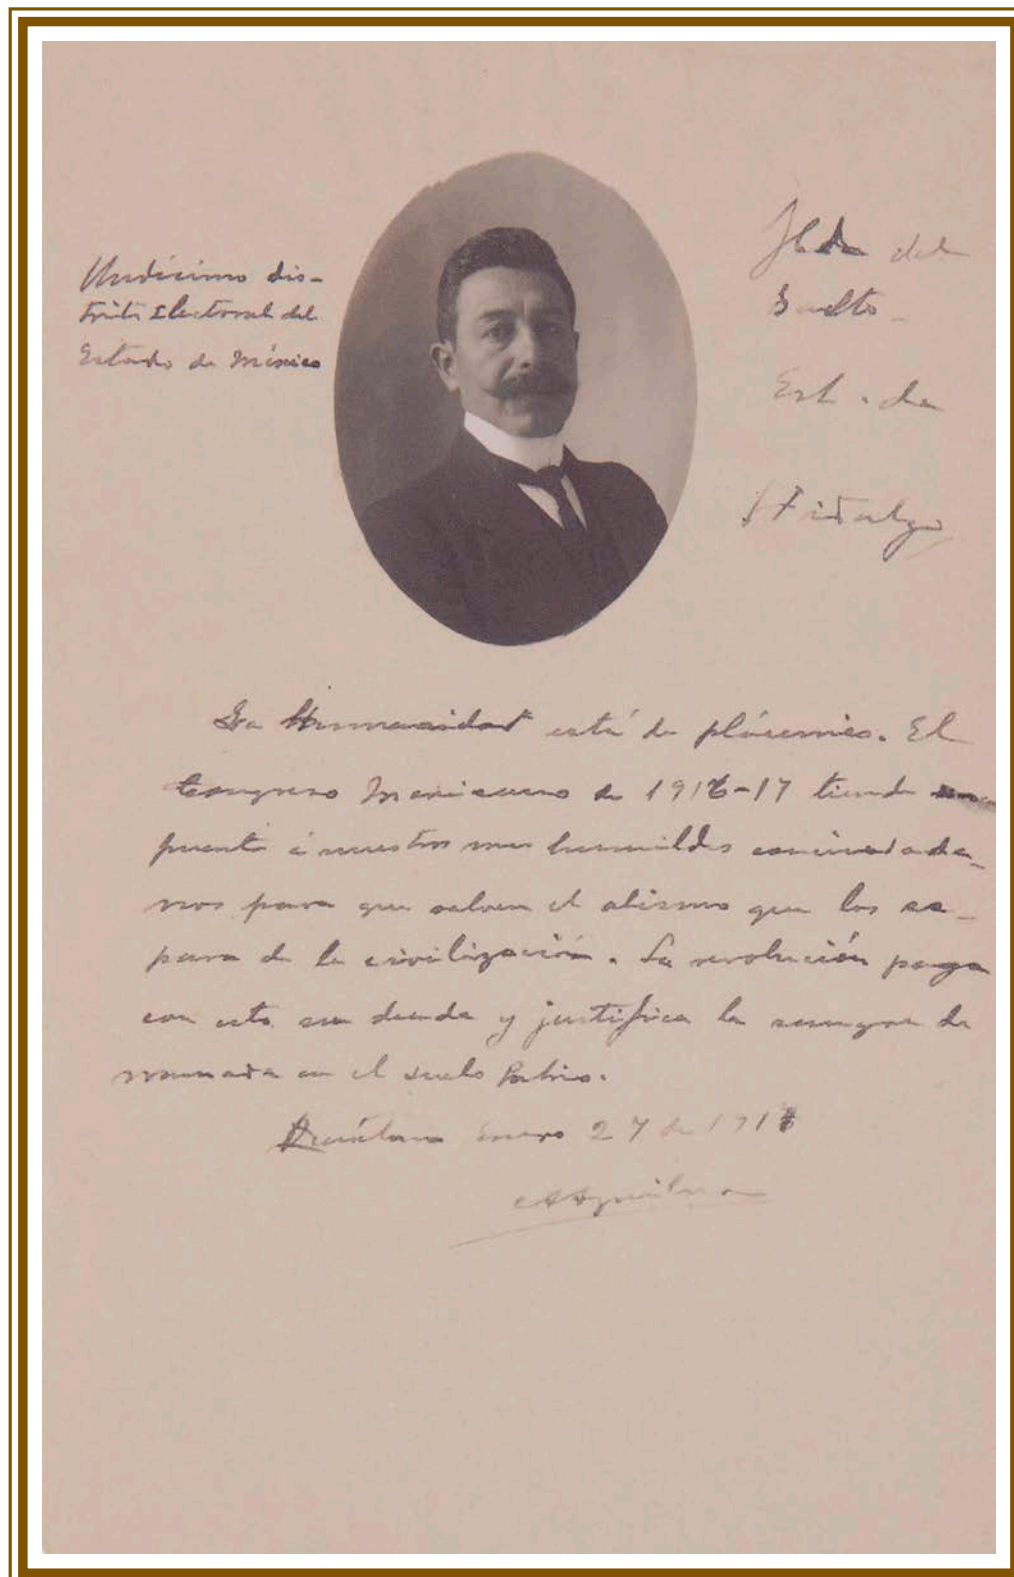 Undécimo dis-
trito Electoral del
Estado de México
Hda del
Salto -
Est. de
Hidalgo
La Humanidad está de plácemes. El
Congreso Mexicano de 1916-17 tiende un
puente á nuestros mas humildes conciudada-
nos para que salven el abismo que los se-
para de la civilización. La revolución paga
con esto su deuda y justifica la sangre de
rramada en el suelo Patrio.
Enero 27 de 1917